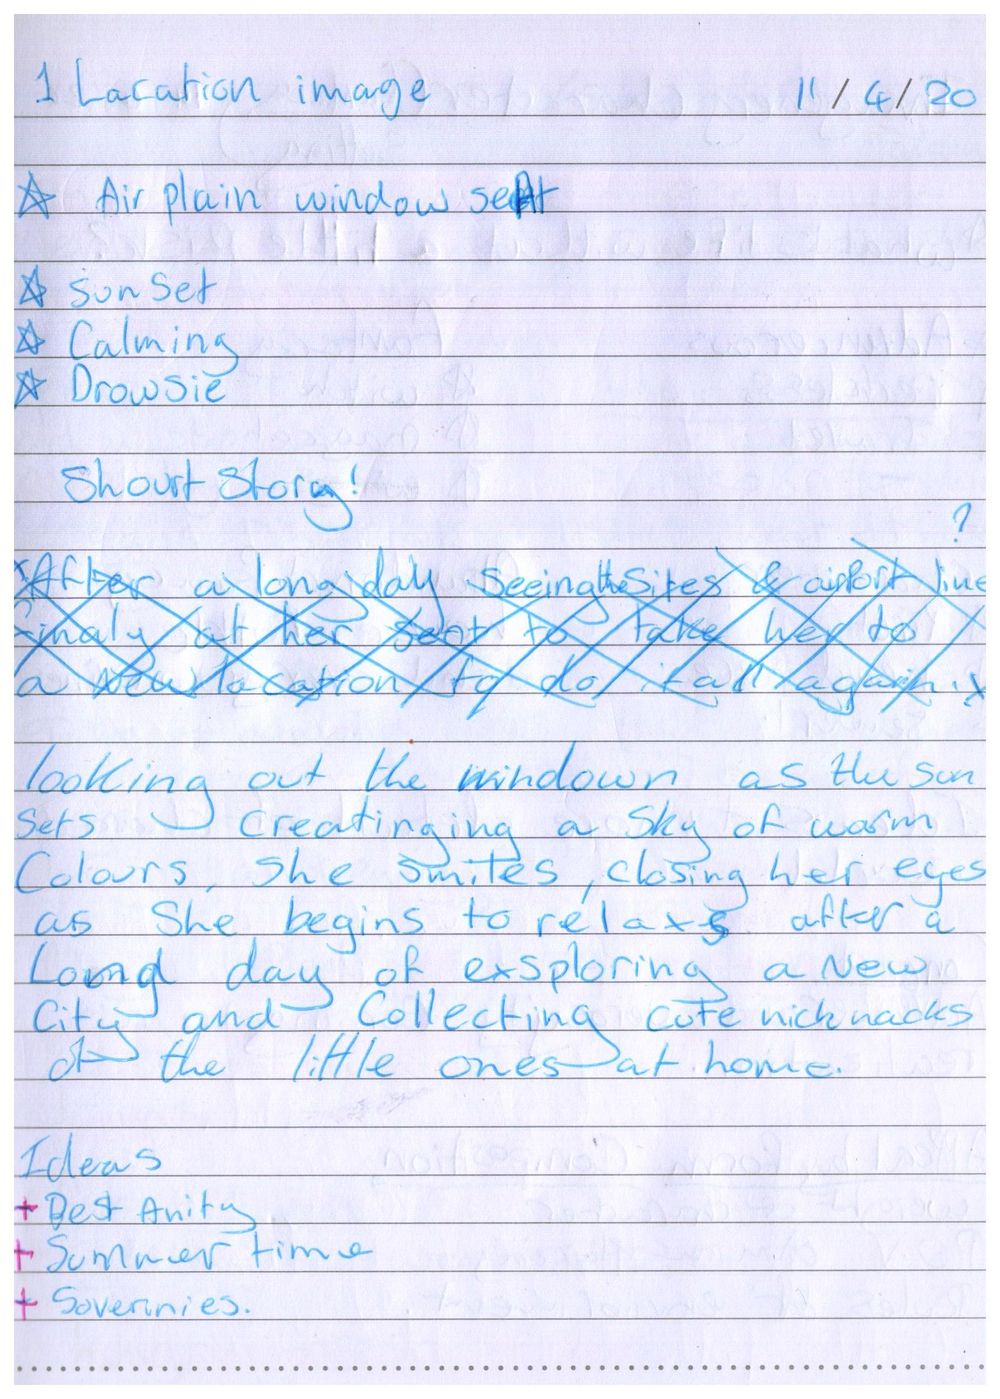 1 Lacation image 11/4/20
☆ Air plain window seAt
☆ Sunset
☆ Calming
☆ Drowsie
Shourt Story!
?
After a long day Seeing the Sites & airport line
finaly at her seat to take her to
a New location to do it all again.
looking out the windown as the sun
Sets Creatinging a Sky of warm
Colours, She smiles, closing her eyes
as She begins to relaxs after a
Long day of exsploring a New
City and Collecting cute nicknacks
of the little ones at home.
Ideas
+ Dest Anity
+ Summer time
+ Soverinies.